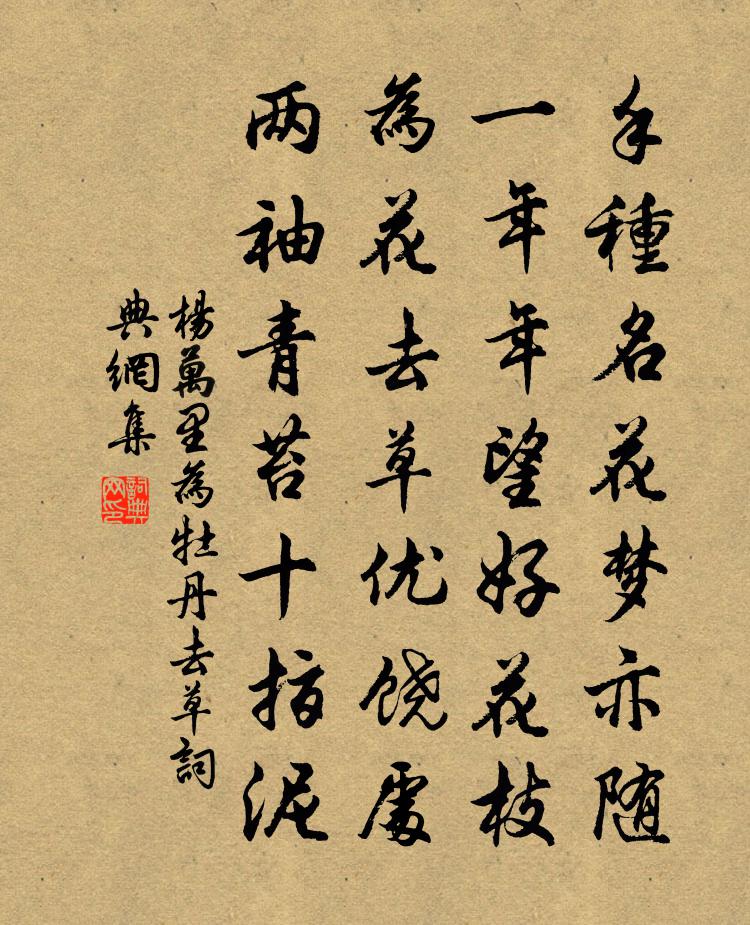 手種名花梦亦随
一年年望好花枝
為花去草优饶處
两袖青苔十指泥
楊萬里為牡丹去草詞
典網集
詞典
网印